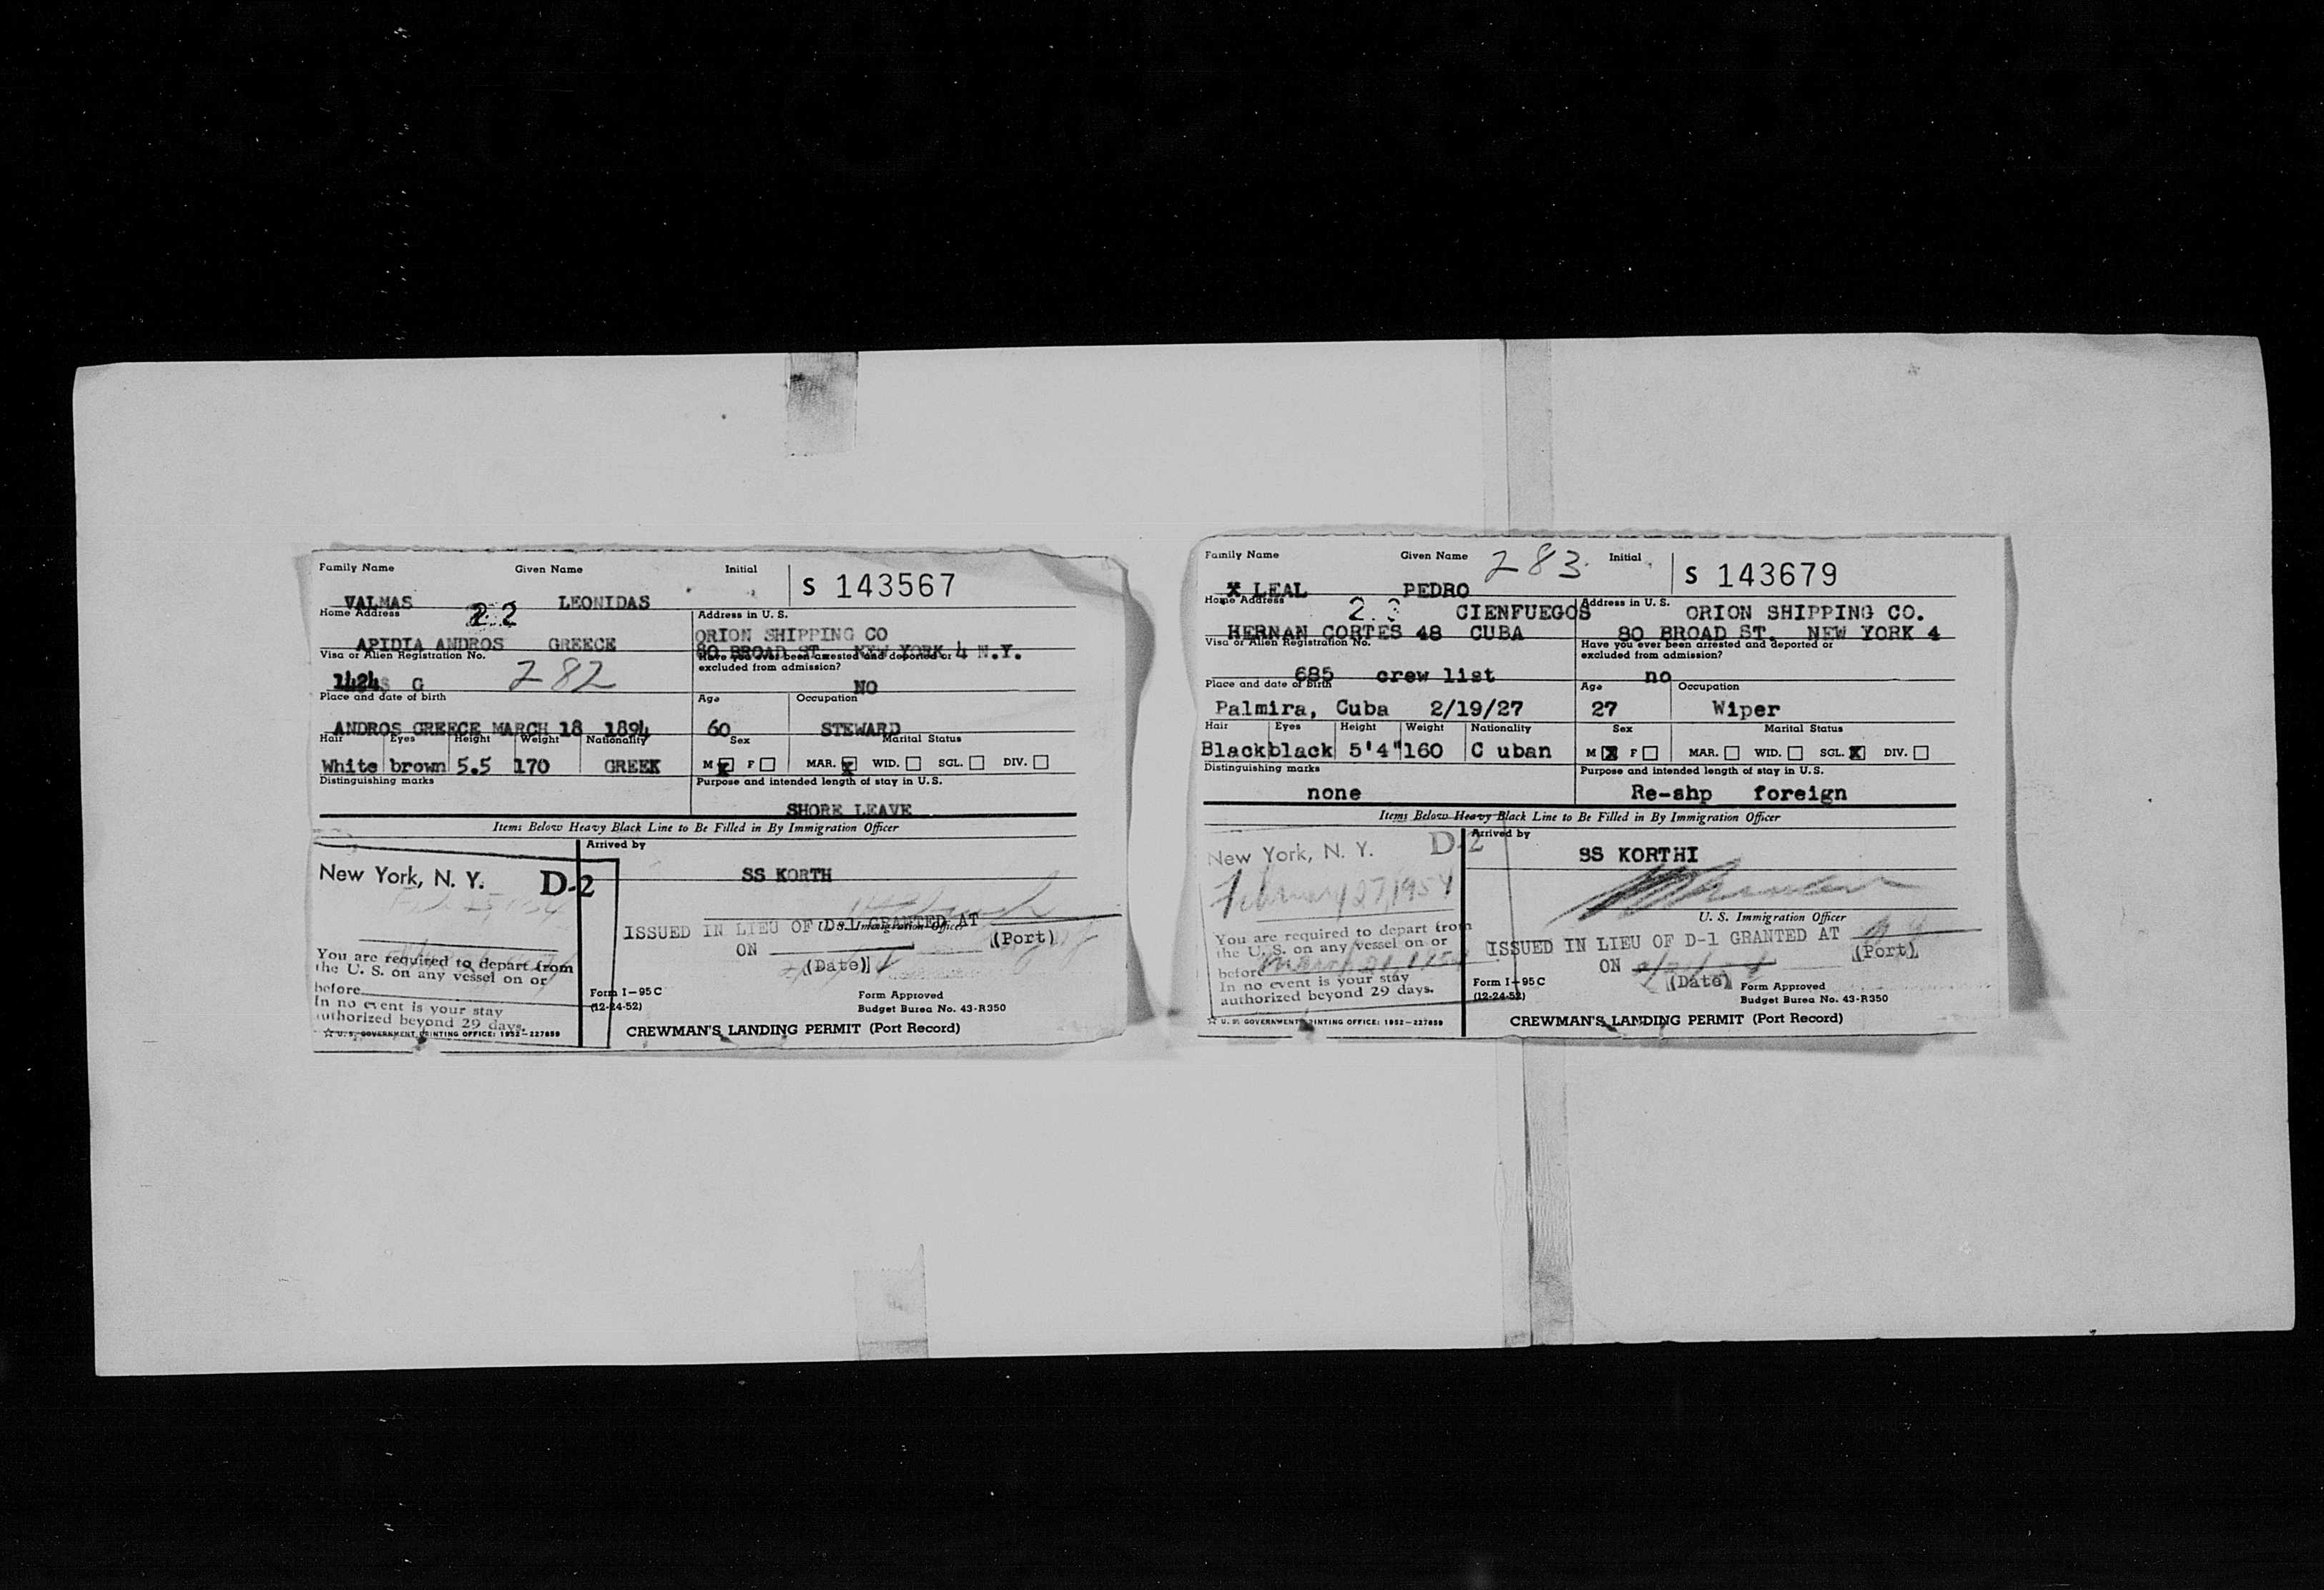 Family Name Given Name Initial
S 143567
VALMAS LEONIDAS
Home Address 22
Address in U. S.
APIDIA ANDROS GREECE
ORION SHIPPING CO
80 BROAD ST. NEW YORK 4 N.Y.
Visa or Alien Registration No.
Have you ever been arrested and deported or
excluded from admission?
G 282
NO
Place and date of birth
Age Occupation
ANDROS GREECE MARCH 18 1894
60 STEWARD
Hair Eyes Height Weight Nationality
Sex Marital Status
White brown 5.5 170 GREEK
M X F MAR. X WID. SGL. DIV.
Distinguishing marks
Purpose and intended length of stay in U. S.
SHORE LEAVE
Items Below Heavy Black Line to Be Filled in By Immigration Officer
Arrived by
SS KORTH
New York, N. Y. D-2
U. S. Immigration Officer
ISSUED IN LIEU OF D-1 GRANTED AT
(Port)
ON
(Date)
You are required to depart from
the U. S. on any vessel on or
before
In no event is your stay
authorized beyond 29 days.
Form I-95C
(12-24-52)
Form Approved
Budget Burea No. 43-R350
☆ U. S. GOVERNMENT PRINTING OFFICE: 1952-227859
CREWMAN'S LANDING PERMIT (Port Record)
Family Name Given Name 283 Initial
S 143679
X LEAL PEDRO
Home Address
Address in U. S.
CIENFUEGOS
ORION SHIPPING CO.
HERNAN CORTES 48 CUBA
80 BROAD ST. NEW YORK 4
Visa or Alien Registration No.
Have you ever been arrested and deported or
excluded from admission?
685 crew list
no
Place and date of birth
Age Occupation
Palmira, Cuba 2/19/27
27 Wiper
Hair Eyes Height Weight Nationality
Sex Marital Status
Black black 5'4" 160 C uban
M X F MAR. WID. SGL. X DIV.
Distinguishing marks
Purpose and intended length of stay in U. S.
none
Re-shp foreign
Items Below Heavy Black Line to Be Filled in By Immigration Officer
Arrived by
SS KORTHI
New York, N. Y. D-2
February 27, 1954
U. S. Immigration Officer
You are required to depart from
the U. S. on any vessel on or
before March
In no event is your stay
authorized beyond 29 days.
ISSUED IN LIEU OF D-1 GRANTED AT
(Port)
ON
(Date)
Form I-95C
(12-24-52)
Form Approved
Budget Burea No. 43-R350
☆ U. S. GOVERNMENT PRINTING OFFICE: 1952-227859
CREWMAN'S LANDING PERMIT (Port Record)